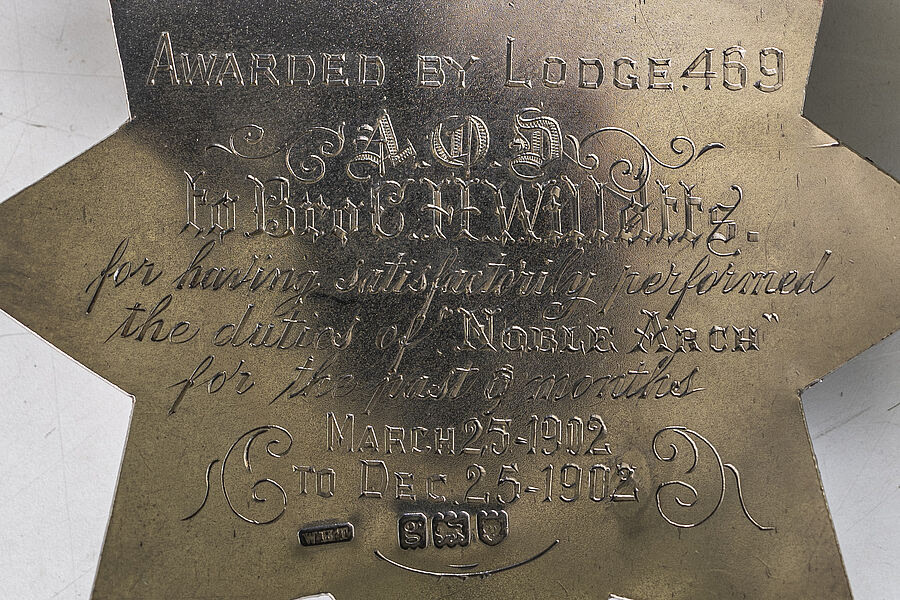 AWARDED BY LODGE.469
A.O.D
to Bro C.H.Willatts.
for having satisfactorily performed
the duties of "NOBLE ARCH"
for the past 9 months
MARCH 25-1902
TO DEC. 25-1902
g